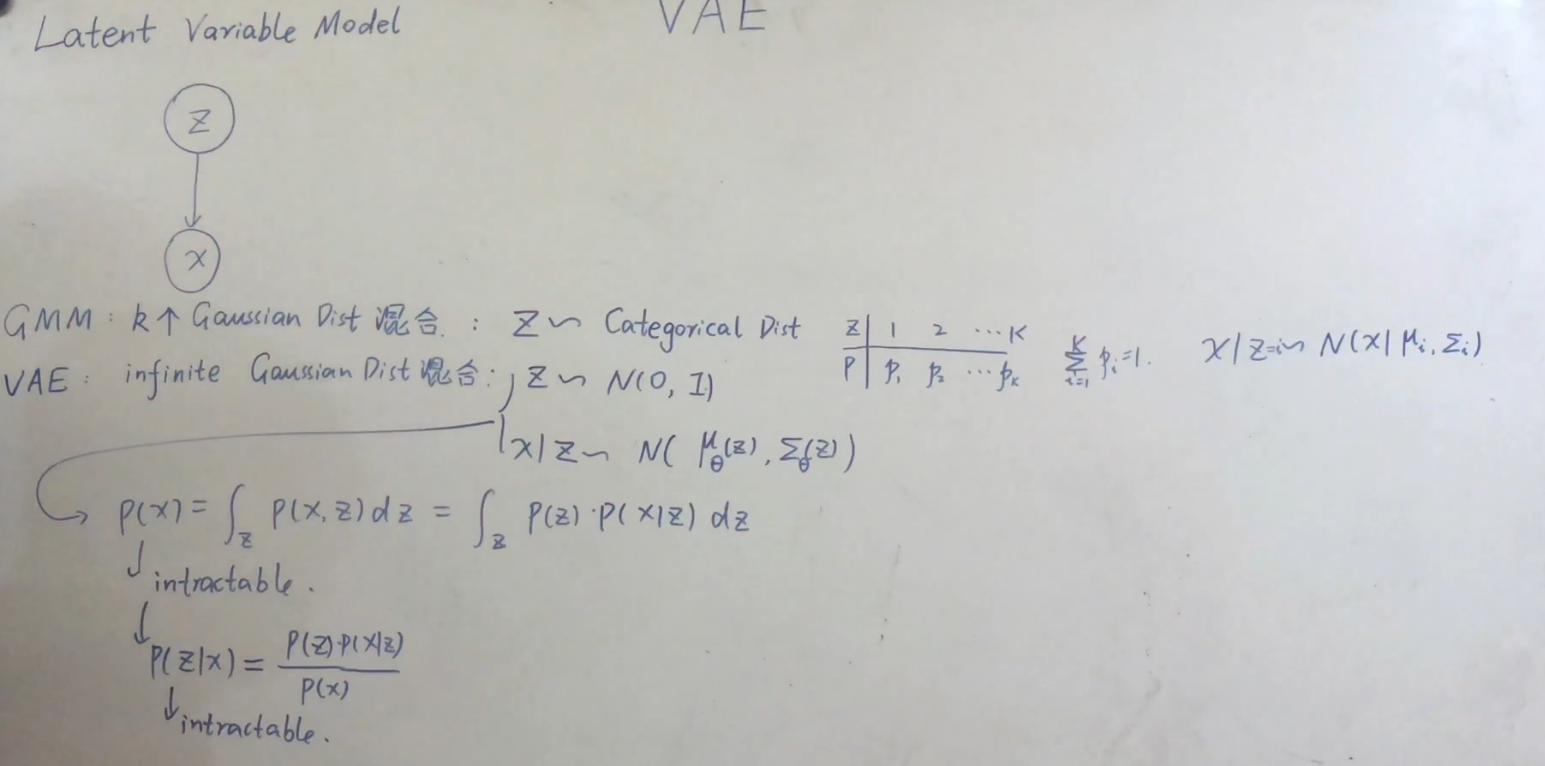 Latent Variable Model
VAE
z
x
GMM: k个 Gaussian Dist 混合: z ~ Categorical Dist
z 1 2 ... K
P p₁ p₂ ... pₖ
∑ᵢ₌₁ᴷ pᵢ=1. x|z=i ~ N(x|μᵢ, Σᵢ)
VAE: infinite Gaussian Dist 混合: z ~ N(0, I)
x|z ~ N(μ_θ(z), Σ_θ(z))
p(x) = ∫_z p(x,z)dz = ∫_z p(z)·p(x|z) dz
intractable.
p(z|x) = p(z)·p(x|z) / p(x)
intractable.